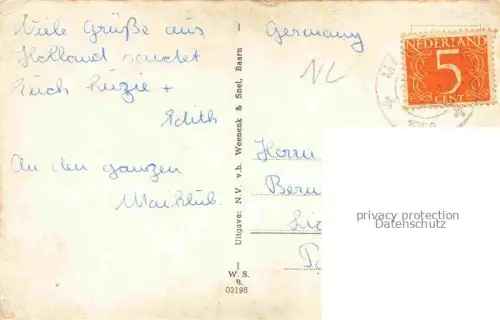 Viele Grüße aus
Holland sendet
Euch Luzie +
Edith
An den ganzen
Maiklub.
Uitgave: N.V. v.h. Weenenk & Snel, Baarn
W. S.
B.
03196
Germany
NL
NEDERLAND
5
CENT
Herrn
Bern
privacy protection
Datenschutz